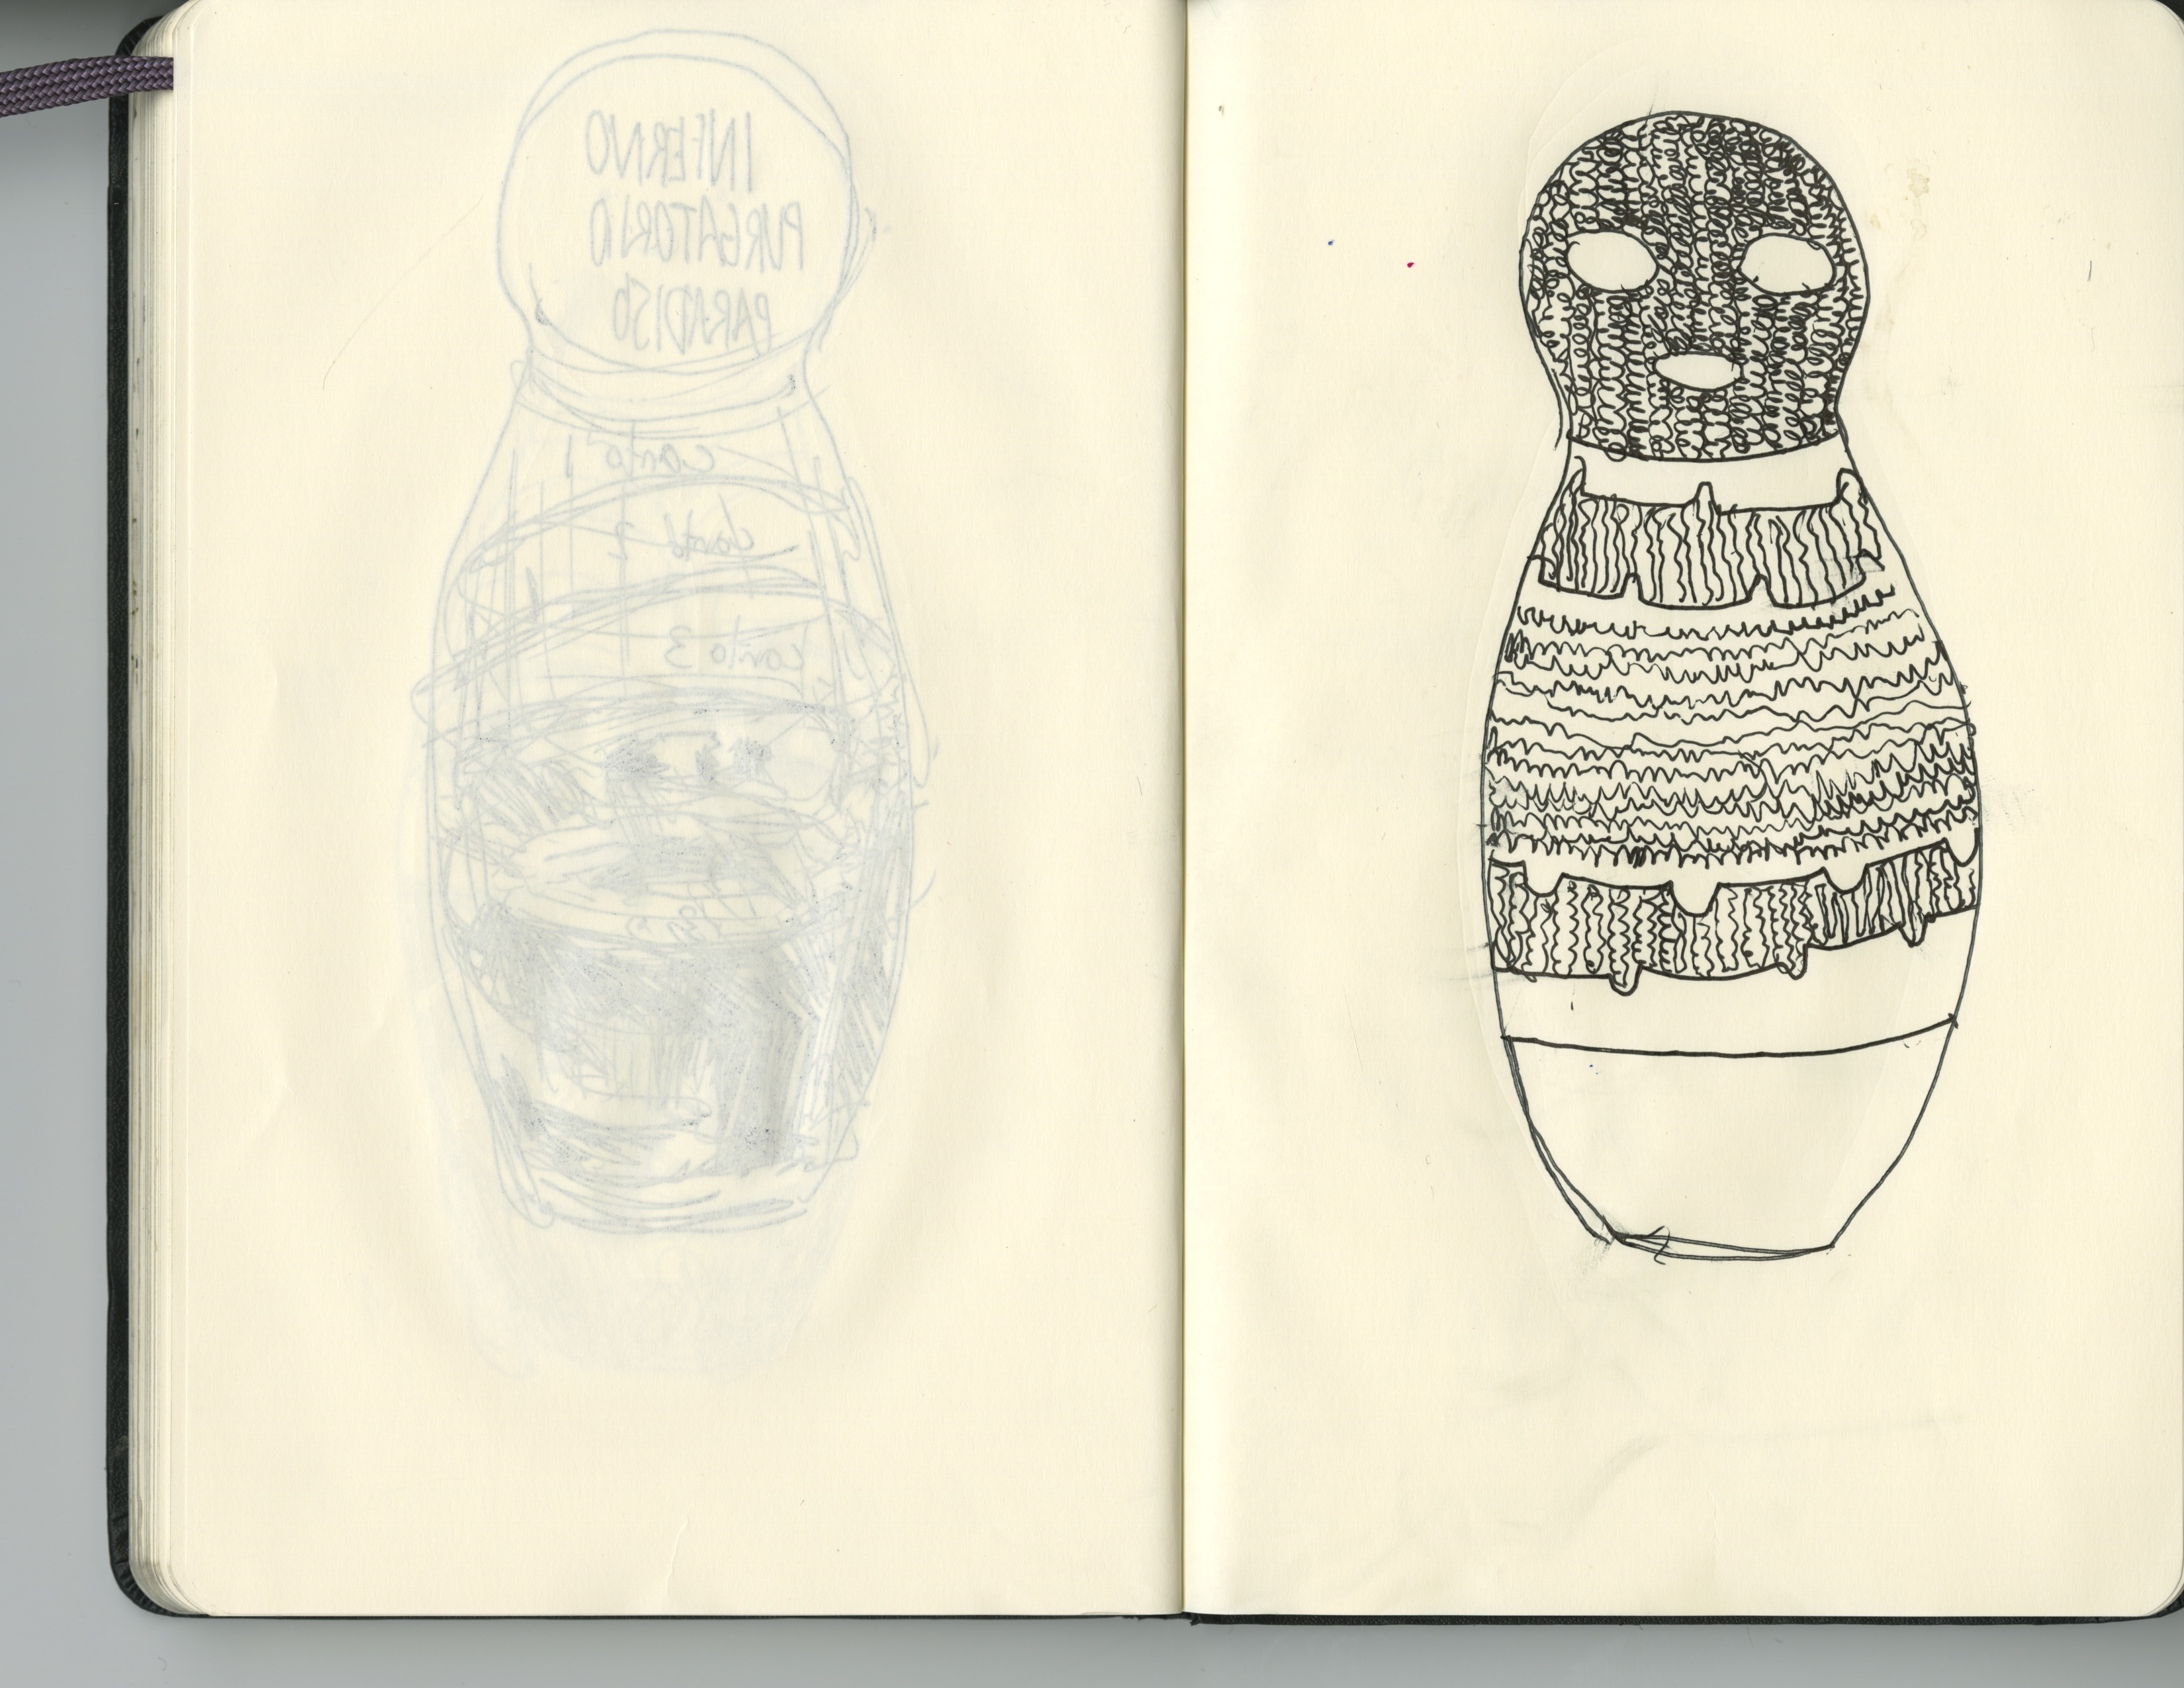 INFERNO
PURGATORIO
PARADISO
canto 1
canto 2
canto 3